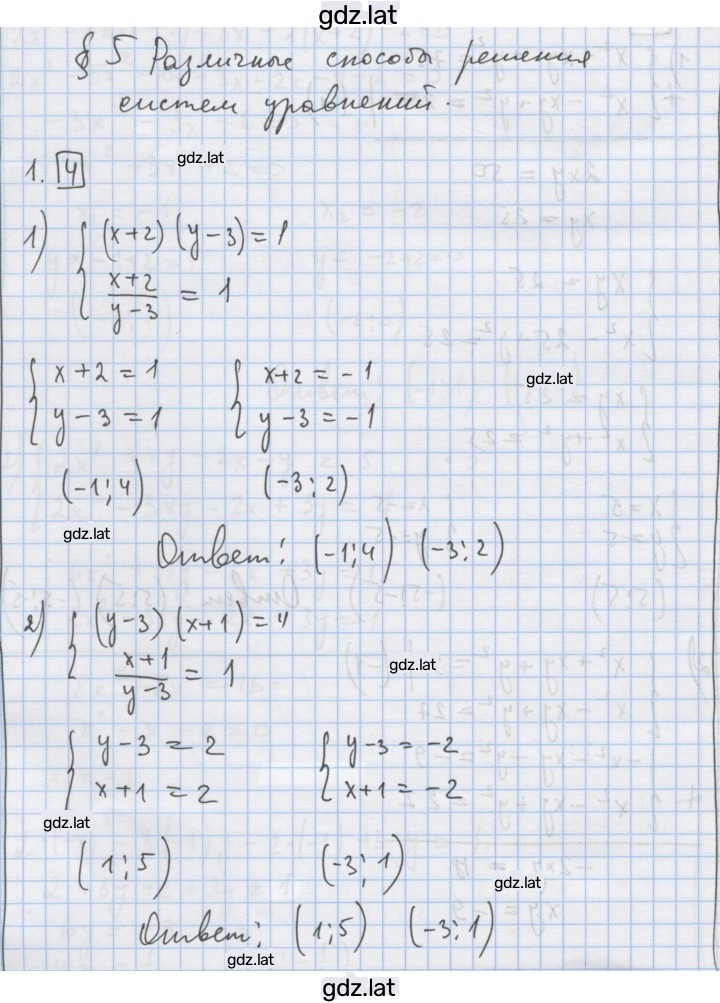 gdz.lat
§ 5 Различные способы решения
систем уравнений.
gdz.lat
1. 4
1) { (x+2) (y-3) = 1
x+2 / y-3 = 1
{ x+2 = 1 { x+2 = -1
gdz.lat
y-3 = 1 y-3 = -1
(-1; 4) (-3; 2)
gdz.lat
Ответ: (-1; 4) (-3; 2)
2) { (y-3) (x+1) = 4
x+1 / y-3 = 1
gdz.lat
{ y-3 = 2 { y-3 = -2
x+1 = 2 x+1 = -2
gdz.lat
(1; 5) (-3; 1)
gdz.lat
Ответ: (1; 5) (-3; 1)
gdz.lat
gdz.lat